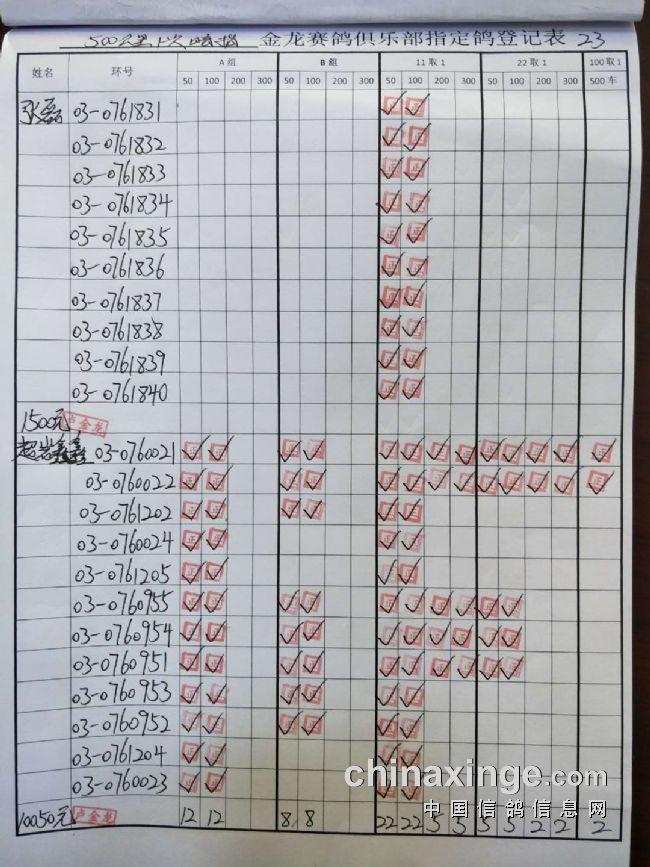 金龙赛鸽俱乐部指定鸽登记表 23
姓名 环号 A 组 B 组 11 取 1 22 取 1 100 取 1
50 100 200 300 50 100 200 300 50 100 200 300 50 100 200 300 500 车
张磊 03-0761831
03-0761832
03-0761833
03-0761834
03-0761835
03-0761836
03-0761837
03-0761838
03-0761839
03-0761840
1500元 卢金龙
03-0760021
03-0760022
03-0761202
03-0760024
03-0761205
03-0760955
03-0760954
03-0760951
03-0760953
03-0760952
03-0761204
03-0760023
10050元 卢金龙 12 12 8 8 22 22 5 5 5 5 2 2 2
chinaxinge.com
中国信鸽信息网